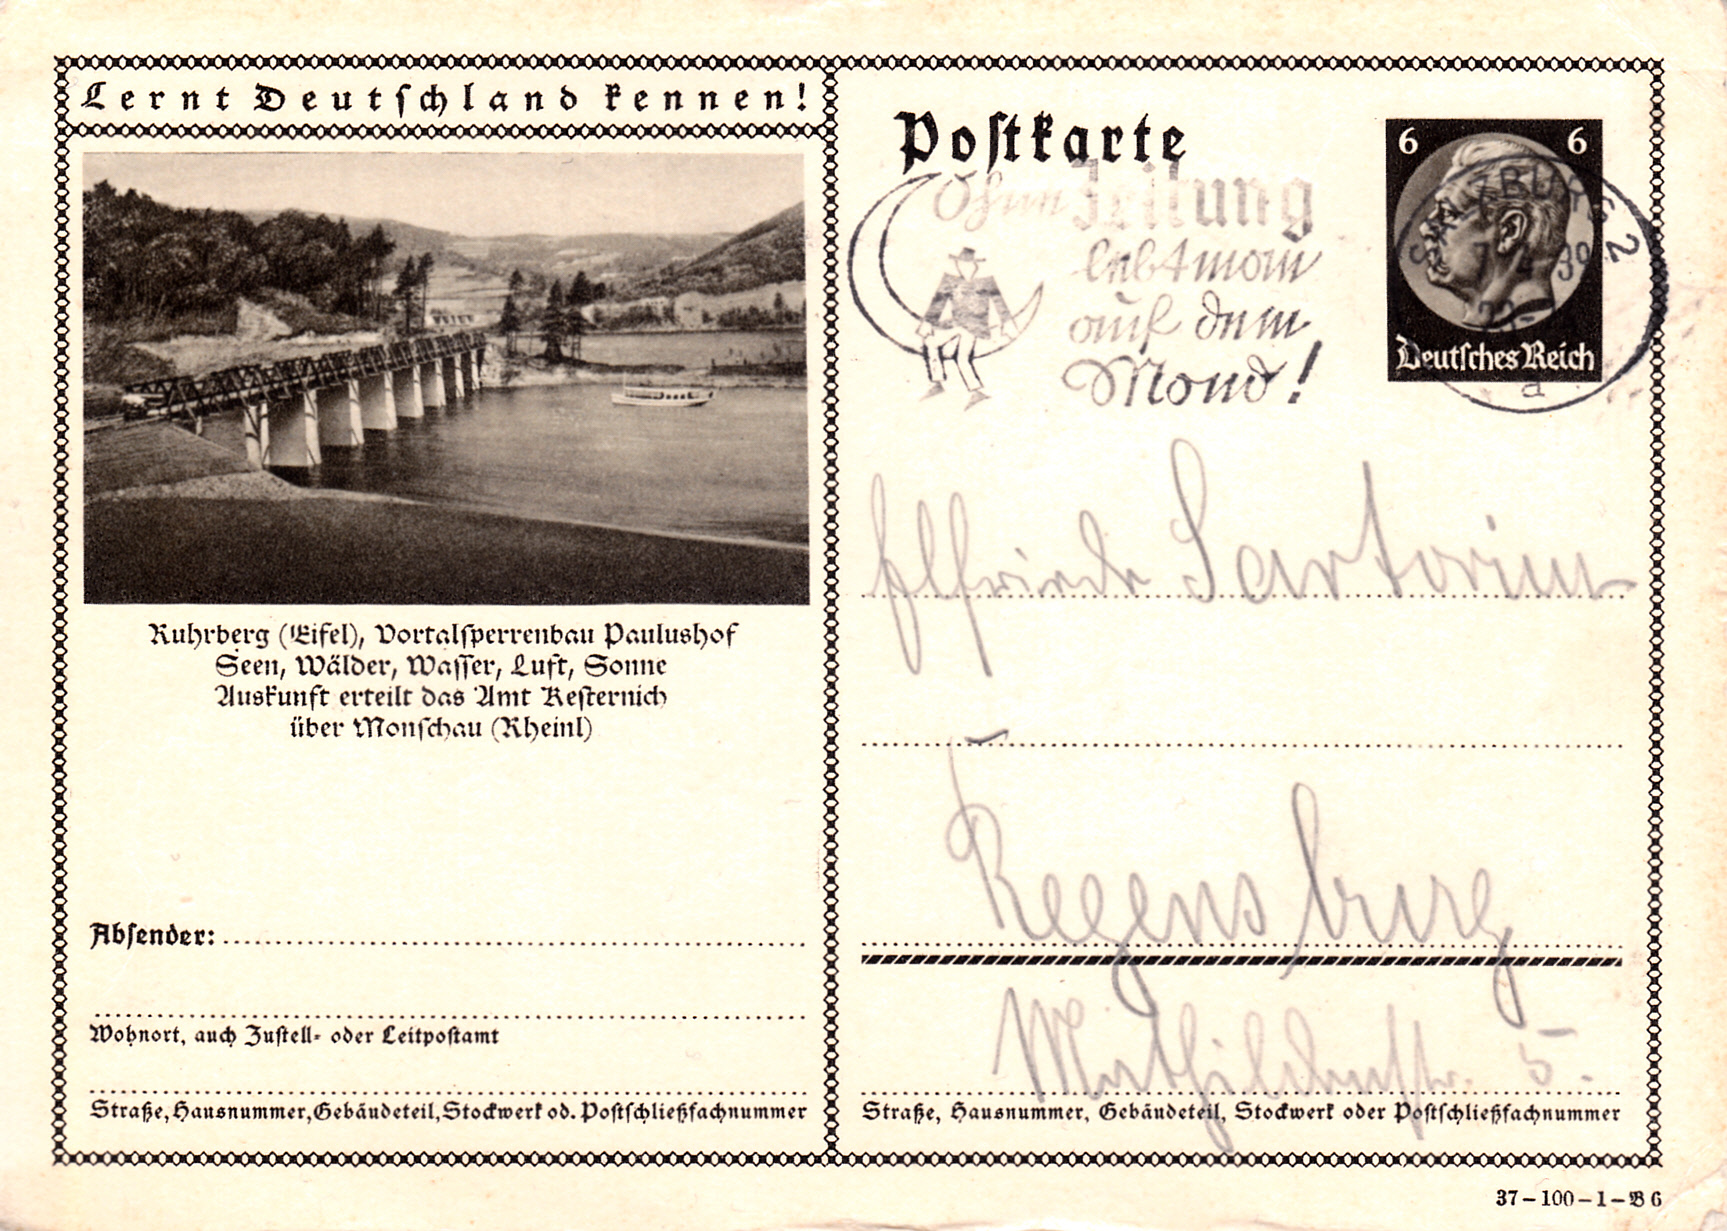 Lernt Deutschland kennen!
Ruhrberg (Eifel), Vortalsperrenbau Paulushof
Seen, Wälder, Wasser, Luft, Sonne
Auskunft erteilt das Amt Kesternich
über Monschau (Rheinl)
Absender:
Wohnort, auch Zustell- oder Leitpostamt
Straße, Hausnummer, Gebäudeteil, Stockwerk od. Postschließfachnummer
Postkarte
Ohne Zeitung
lebt man
auf dem
Mond!
6 6
Deutsches Reich
2
a
Elfriede Sartorius
Regensburg
5.
Straße, Hausnummer, Gebäudeteil, Stockwerk oder Postschließfachnummer
37–100–1–B 6